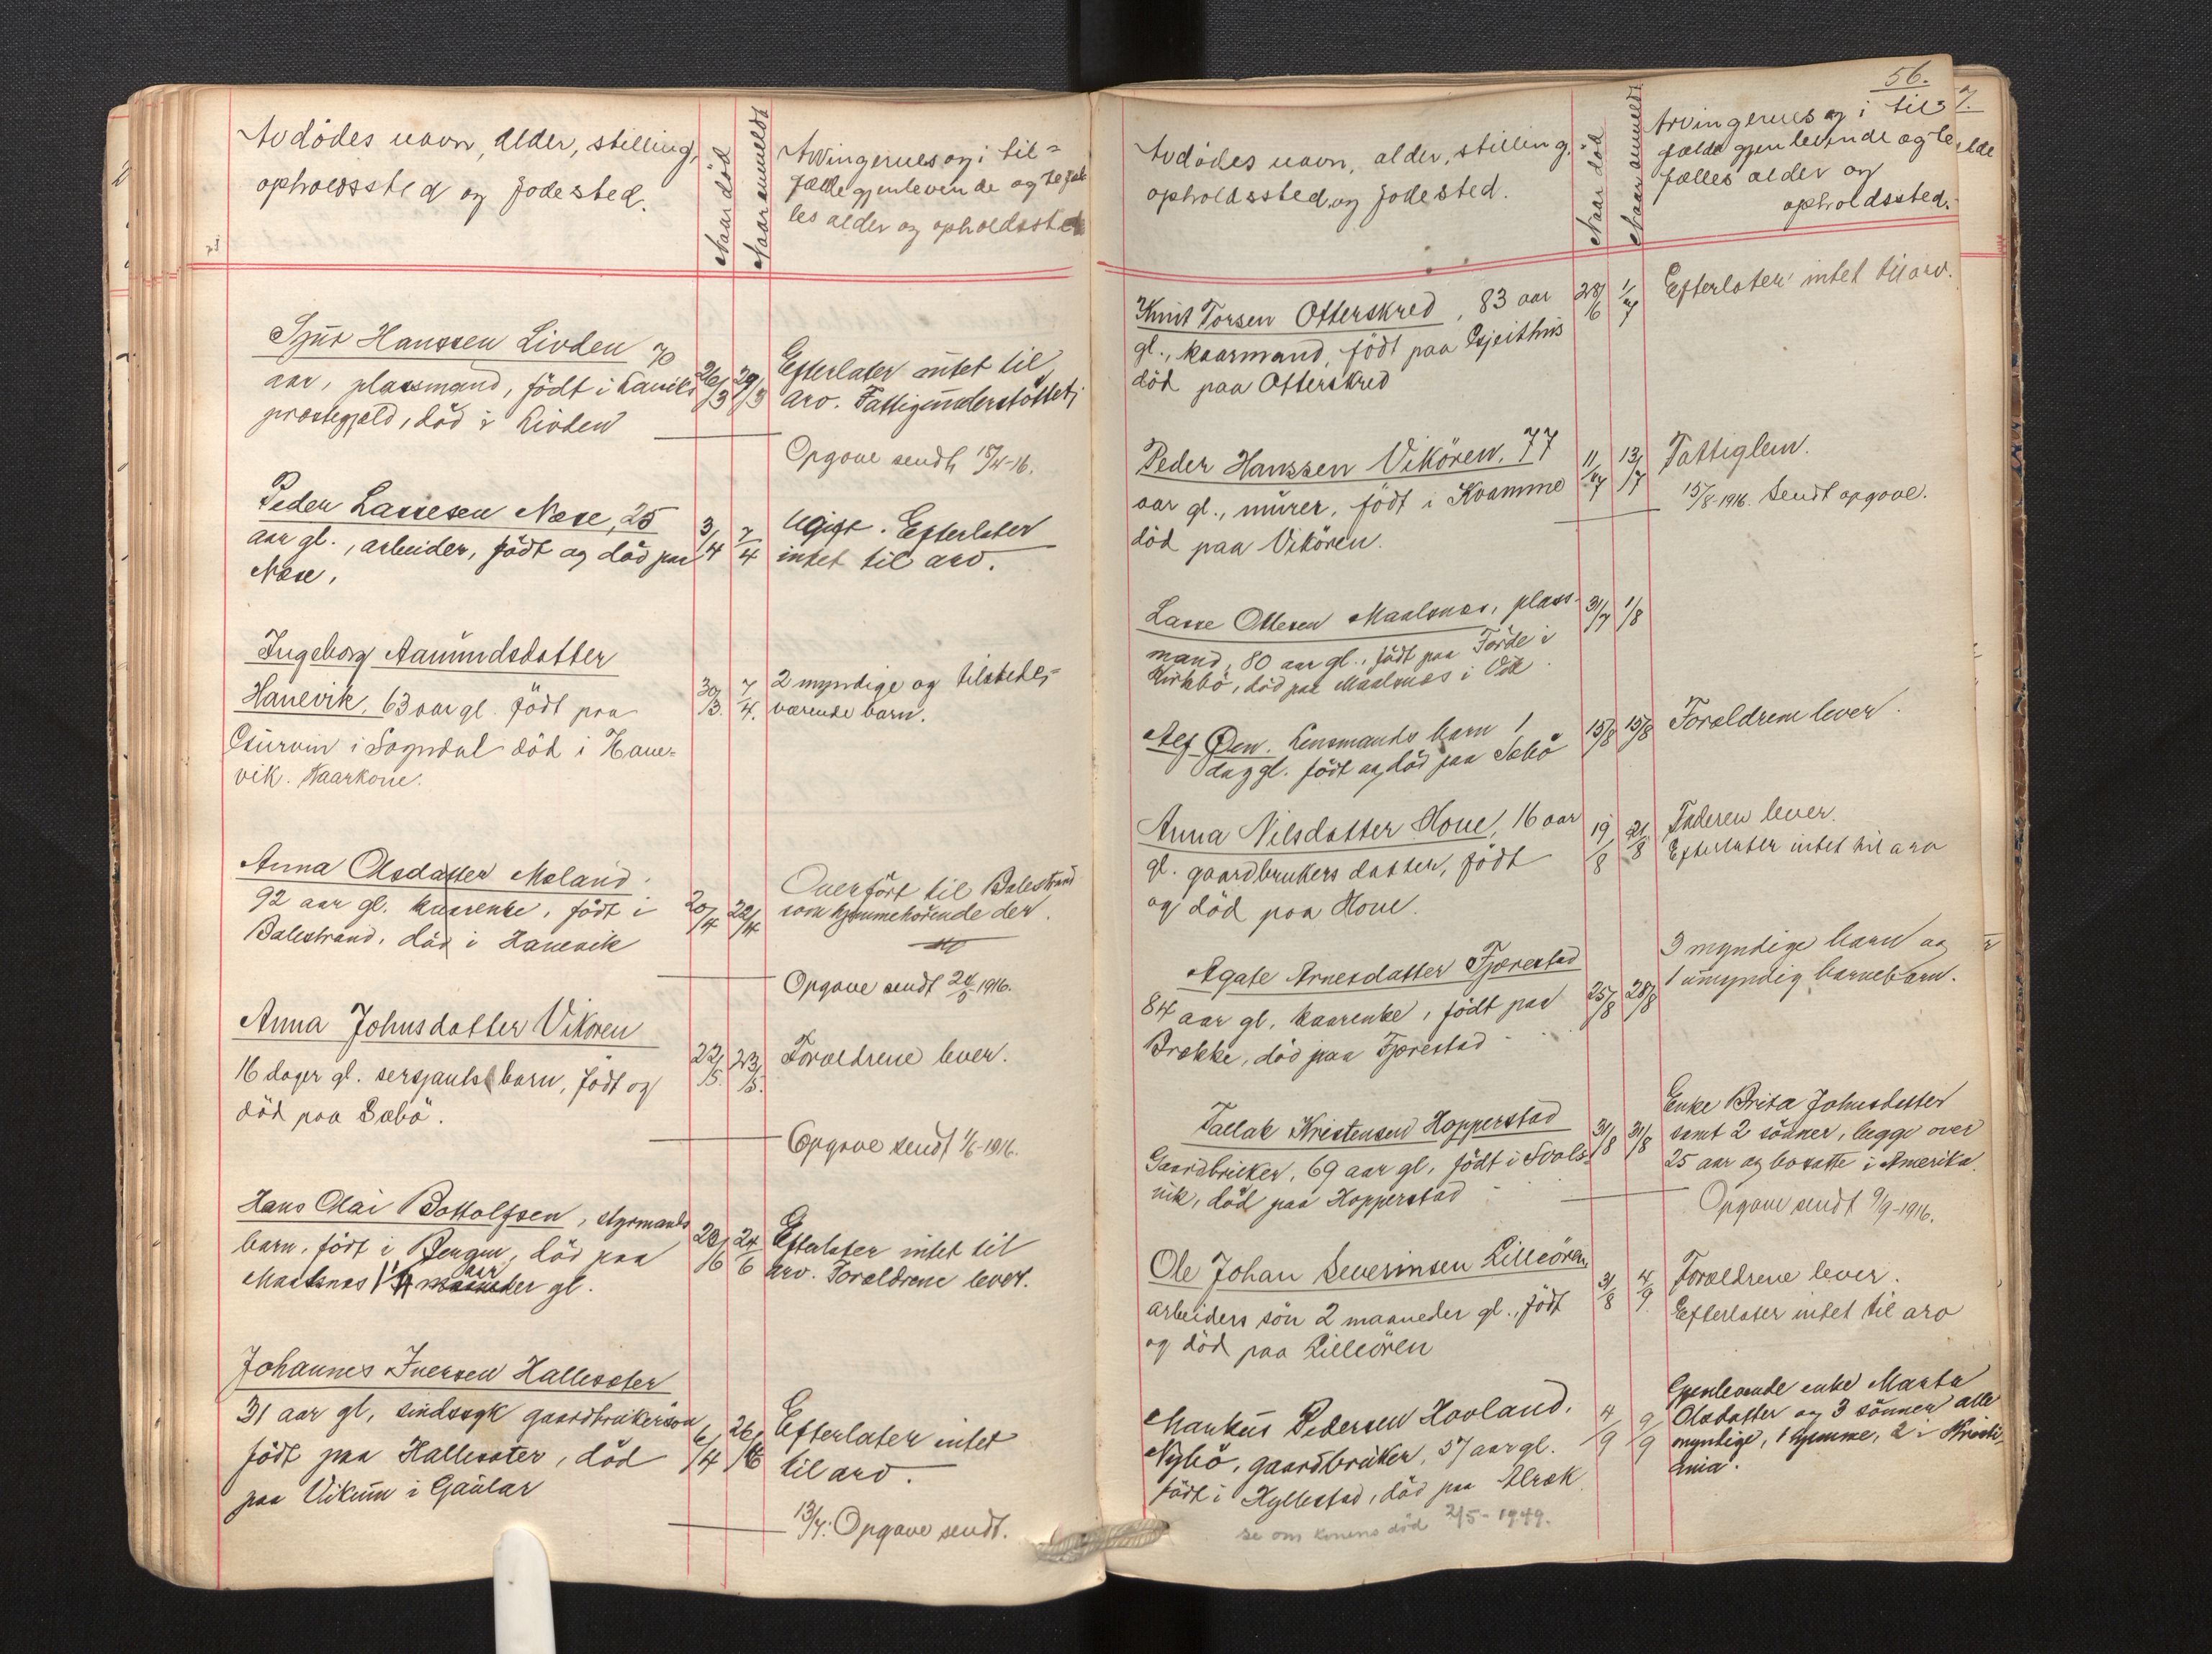 Avdödes navn, alder, stilling,
opholdssted og födested.
Naar död
Naar anmeldt
Arvingernes og i til=
fælde gjenlevende ægtefæl
les alder og opholdssted
Sjur Hanssen Livden 70
aar, plassmand, födt i
prestegjeld, död i Livden
26/3
29/3
Efterlater intet til
arv. Fattigunderstöttet;
Opgave sendt 15/4-16.
Peder Lassesen Nese, 25
aar gl., arbeider, födt og död paa
Nese.
3/4
7/4
Ugift. Efterlater
intet til arv.
Ingeborg Aamundsdatter
Hanevik, 63 aar gl. födt paa
i Sogndal död i Hane=
vik. Kaarkone.
30/3.
7/4.
2 myndige og tilstede=
værende barn.
Anna Olsdatter Moland.
92 aar gl. kaarenke, födt i
Balestrand, död i Hanevik
20/4
22/4
Overfört til Balestrand
som hjemmehörende der.
Opgave sendt 24/5-1916.
Anna Johnsdatter Vikören
16 dager gl. sersjants barn, födt og
död paa Sæbö.
22/5.
23/5.
Foreldrene lever.
Opgave sendt 1/6-1916.
Hans Olai Bottolfsen, styrmands
barn, födt i Bergen, död paa
Maalsnes 1 1/4 aar maaneder gl.
20/6
24/6
Efterlater intet til
arv. Foreldrene lever.
Johannes Iversen Hallesæter
31 aar gl, sindssyk gaardbrukersön
födt paa Hallesæter, död
paa Vikum i Gaular
6/4
26/6
Efterlater intet
til arv.
13/7. Opgave sendt.
56.
7.
Avdödes navn, alder, stilling,
opholdssted og födested.
Naar död
Naar anmeldt
Arvingernes og i til=
fælde gjenlevende ægte
fælles alder og
opholdssted.
Knut Torsen Otterskred, 83 aar
gl., kaarmand, födt paa Gjeithus
död paa Otterskred
28/6
1/7
Efterlater intet til arv.
Peder Hanssen Vikören, 77
aar gl., murer, födt i Kvamme
död paa Vikören.
11/7
13/7
Fattiglem.
15/8-1916. Sendt opgave.
Lasse Ottesen Maalsnes, plass-
mand, 80 aar gl., födt paa Förde i
Kirkebö, död paa Maalsnes i Vik
31/7
1/8
Alf Öen. Lensmands barn 1
dag gl. födt og död paa Sæbö
15/8
15/8
Foreldrene lever.
Anna Nilsdatter Hove, 16 aar
gl. gaardbrukers datter, födt
og död paa Hove.
19/8
21/8
Faderen lever.
Efterlater intet til arv
Agate Arnesdatter Fjærestad
84 aar gl, kaarenke, födt paa
Brekke, död paa Fjærestad
25/8
28/8
3 myndige barn og
1 umyndig barnebarn.
Tallak Kristensen Hopperstad
Gaardbruker, 69 aar gl, födt i Svols-
vik, död paa Hopperstad
31/8
31/8
Enke Brita Johnsdatter
samt 2 sönner, begge over
25 aar og bosatte i Amerika.
Opgave sendt 9/9-1916.
Ole Johan Severinsen Lilleören,
arbeiders sön 2 maaneder gl., födt
og död paa Lilleören
31/8
4/9.
Foreldrene lever.
Efterlater intet til arv
Markus Pedersen Hovland,
Nybö, gaardbruker, 57 aar gl.
födt i Hyllestad, död paa
4/9
9/9
Gjenlevende enke Marta
Olsdatter og 3 sönner alle
myndige, 1 hjemme, 2 i Kristi-
ania.
se om konens död 2/5-1949.